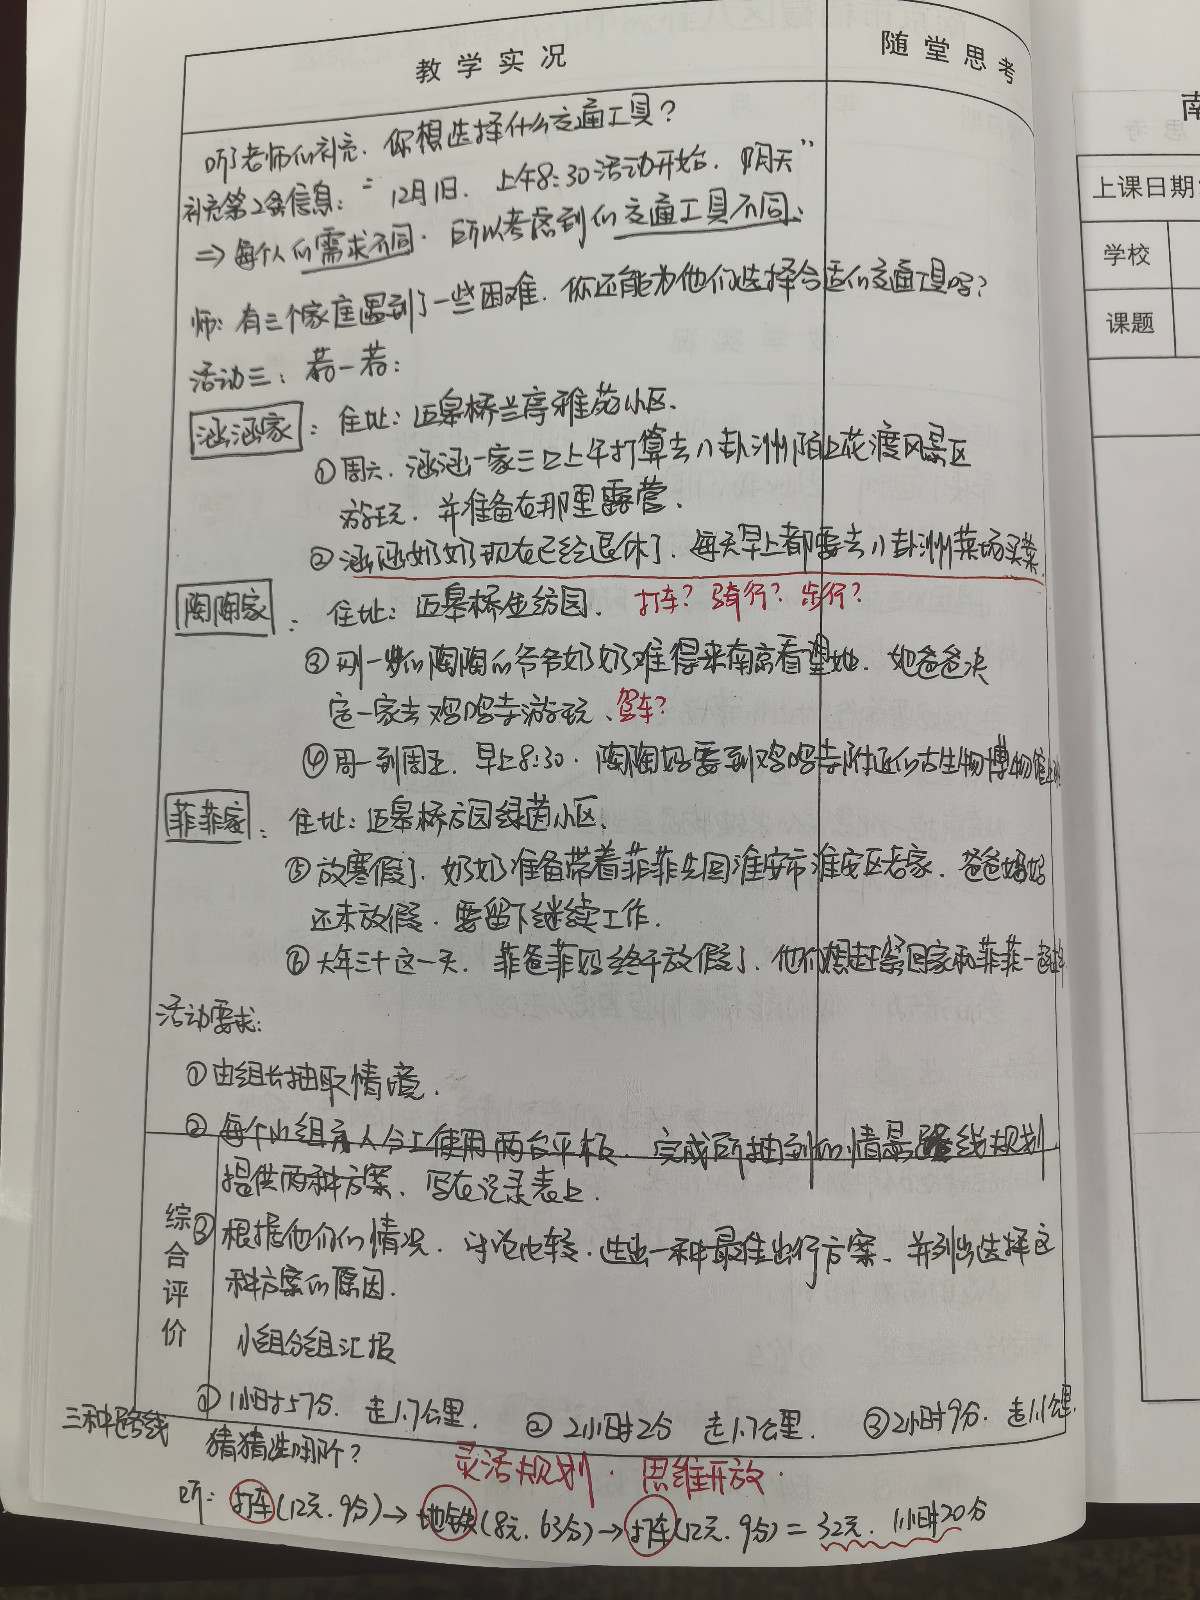 教学实况
随堂思考
听了老师的补充，你想选择什么交通工具？
补充第2条信息："12月1日，上午8:30活动开始，阴天"
⇒ 每个人的需求不同，所以考虑到的交通工具不同。
师：有三个家庭遇到了一些困难，你还能为他们选择合适的交通工具吗？
活动三：帮一帮：
涵涵家：住址：迈皋桥兰亭雅苑小区.
①周六，涵涵一家三口上午打算去八卦洲陌上花渡风景区
游玩，并准备在那里露营.
②涵涵奶奶现在已经退休了，每天早上都要去八卦洲菜场买菜.
陶陶家：住址：迈皋桥佳纺园. 打车？骑行？步行？
③刚一岁的陶陶的爷爷奶奶难得来南京看望她，她爸爸决
定一家去鸡鸣寺游玩、驾车？
④周一到周五，早上8:30，陶陶妈要到鸡鸣寺附近的古生物博物馆上班
菲菲家：住址：迈皋桥方园绿茵小区.
⑤放寒假了，奶奶准备带着菲菲先回淮安市淮安区老家，爸爸妈妈
还未放假，要留下继续工作.
⑥大年三十这一天，菲爸菲妈终于放假了，他们想赶紧回家和菲菲一起
活动要求：
①由组长抽取情境.
②每个小组 人分工使用两台平板，完成所抽到的情景 线规划
提供两种方案，写在记录表上.
综合评价
③根据他们的情况，讨论比较，选出一种最佳出行方案、并列出选择这
种方案的原因.
小组分组汇报
三种路线
①1小时57分，走1.7公里. ②2小时2分 走1.7公里. ③2小时9分，走1.1公里.
猜猜选哪个？
灵活规划，思维开放.
听：打车(12元，9分)→地铁(8元，63分)→打车(12元，9分)=32元，1小时20分
南
上课日期
学校
课题